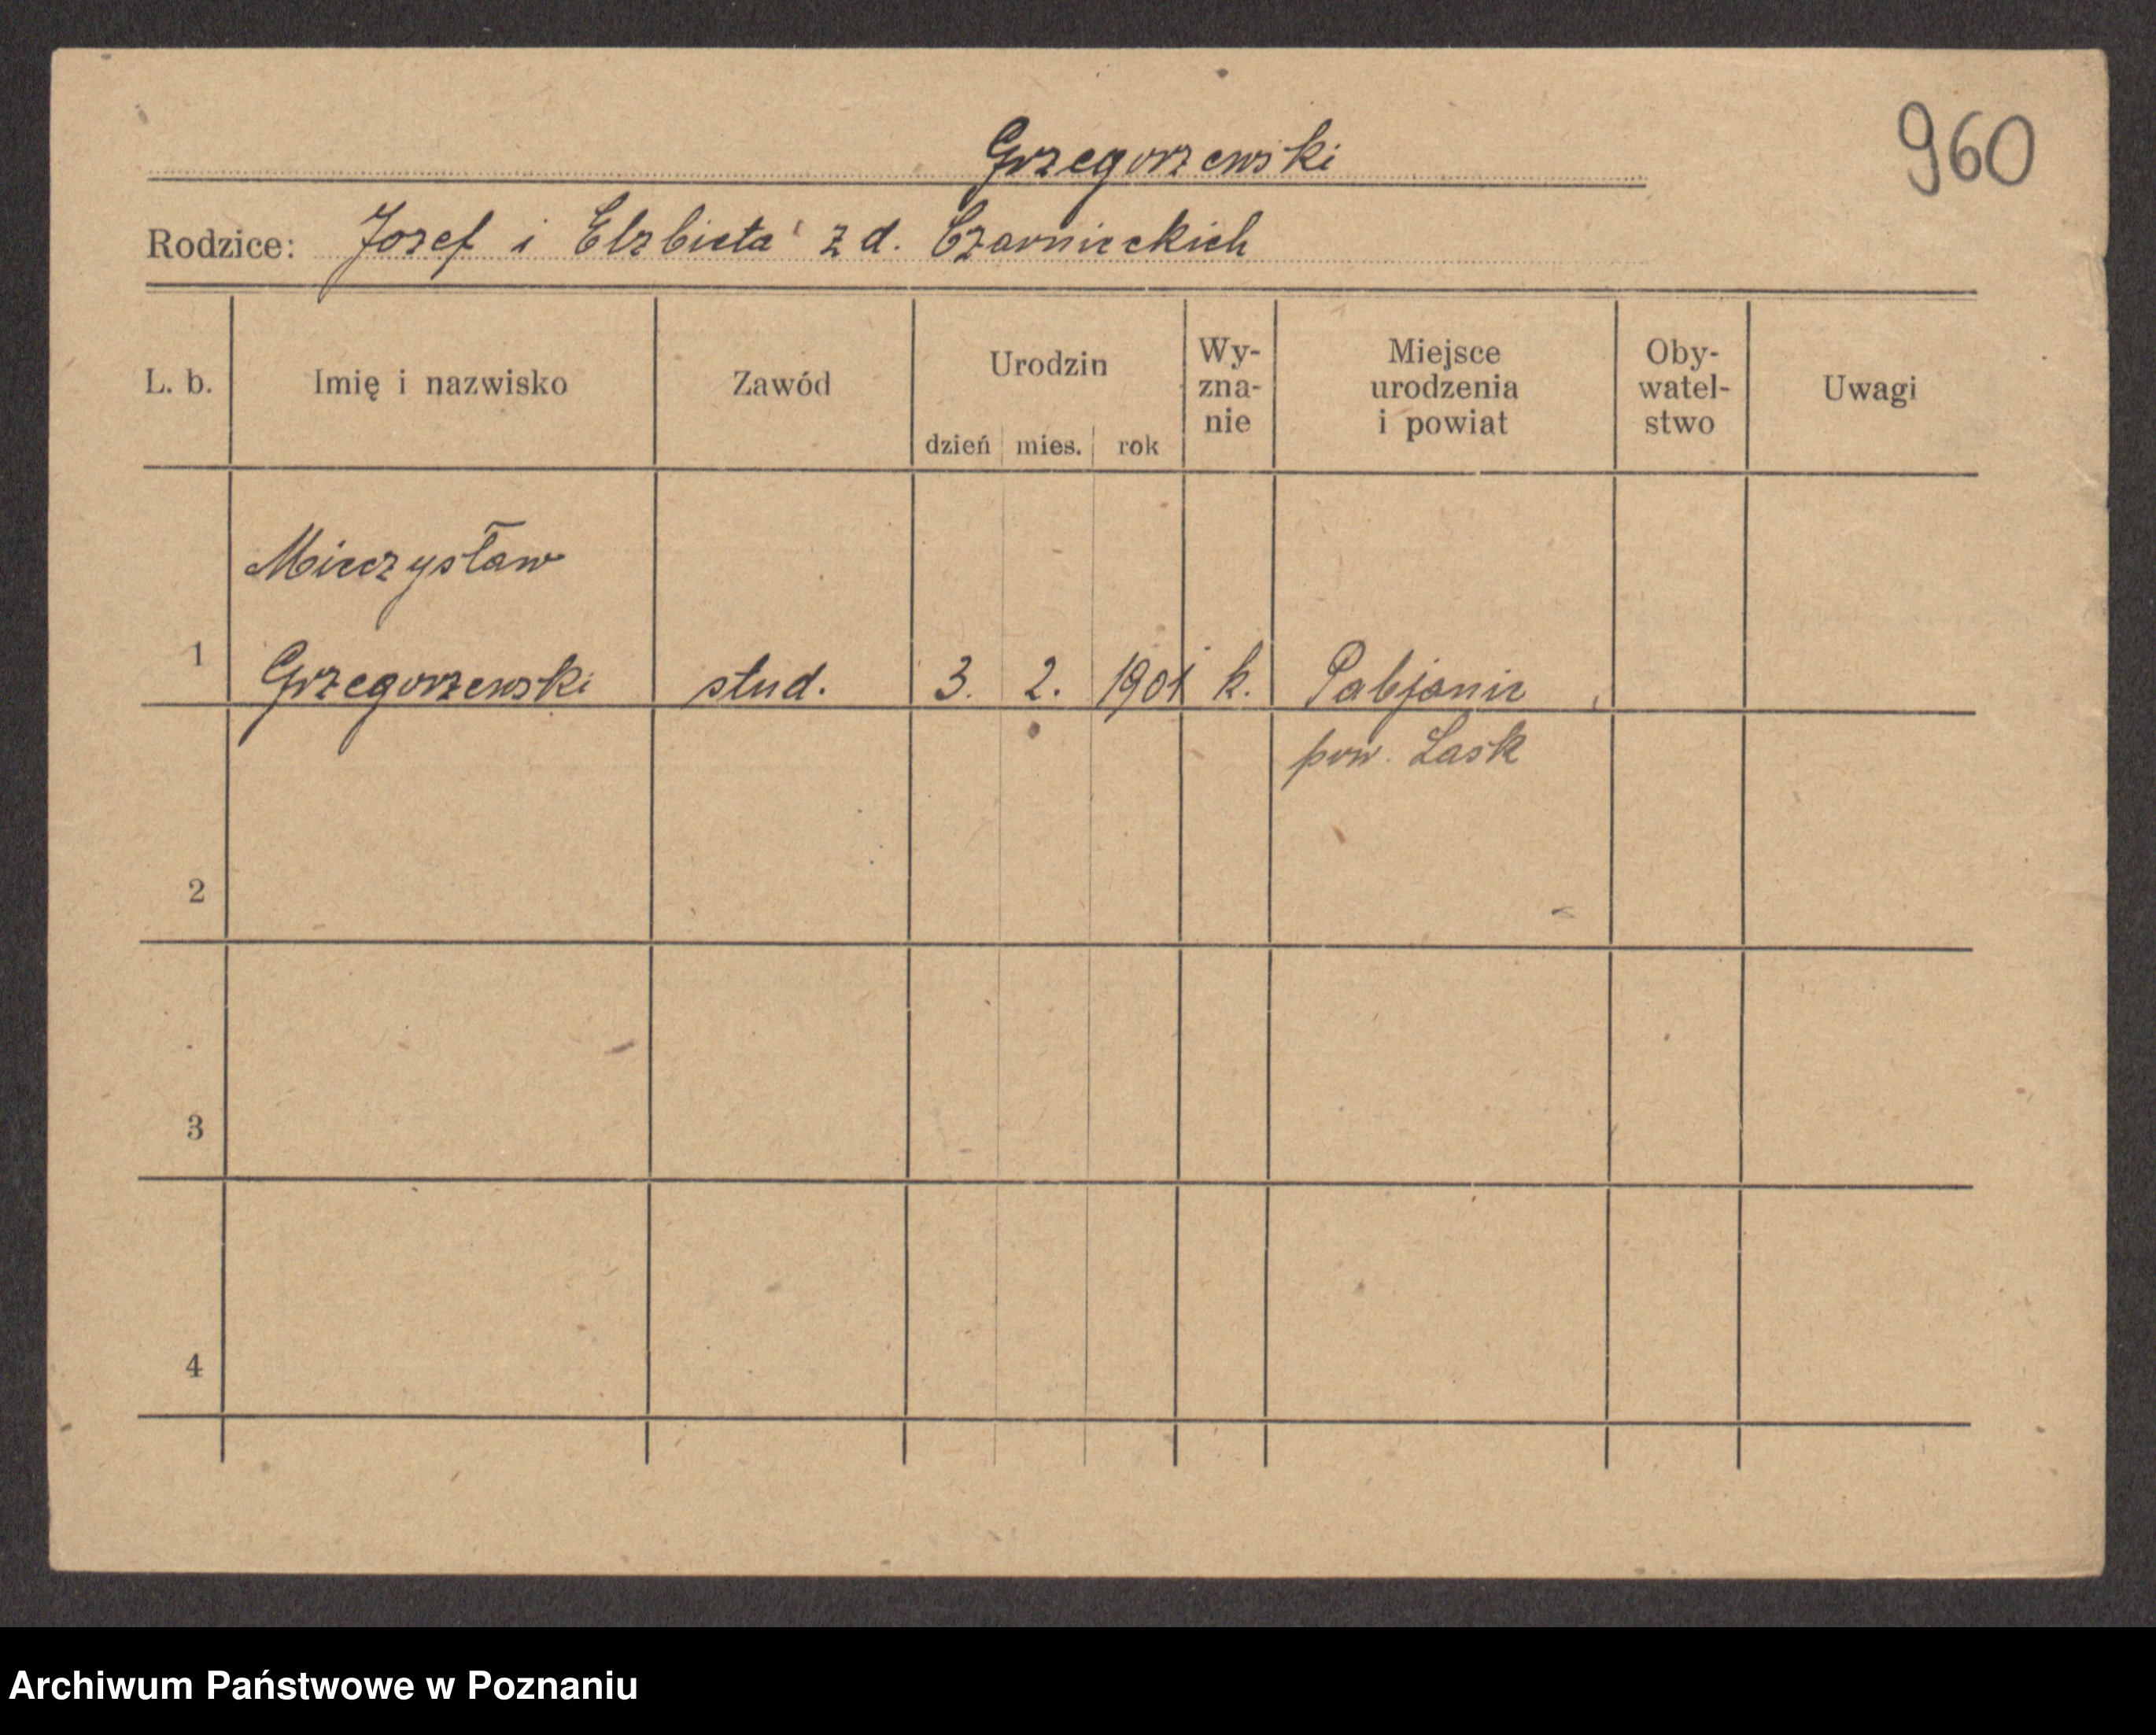 Grzegorzewski
960
Rodzice: Jozef i Elzbieta z d. Czarnieckich
L. b. Imię i nazwisko Zawód Urodzin dzień mies. rok Wy-zna-nie Miejsce urodzenia i powiat Oby-watel-stwo Uwagi
Mieczysław
1 Grzegorzewski stud. 3. 2. 1901 k. Pabjanic
pow. Lask
2
3
4
Archiwum Państwowe w Poznaniu